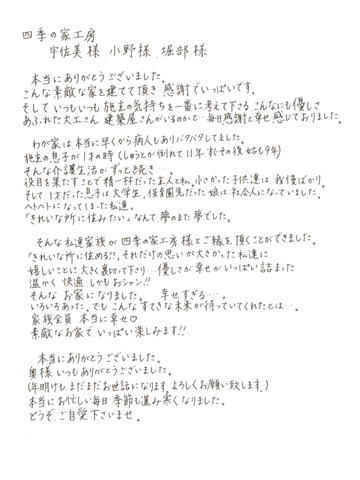 四季の家工房
宇佐美様 小野様 堀部様
本当にありがとうございました。
こんな素敵な家を建てて頂き 感謝でいっぱいです。
そして いつもいつも 施主の気持ちを一番に考えて下さる こんなにも優しさ
あふれた大工さん 建築屋さんがいるのかと…毎日感謝と幸せ感じておりました。
わが家は本当に早くから病人もありバタバタしてました。
施主の息子が1才の時(しゅうとが倒れて11年 すぐその後 姑も9年)
そんな介護生活がずっと続き…。
役目を果たすことで精一杯だった主人と私。小さかった子供達は、我慢ばかり。
そして1才だった息子は大学生、保育園児だった娘は社会人になっていました。
ヘトヘトになってしまった私達。
「きれいな所に住みたい」なんて 夢のまた夢でした。
そんな私達家族が 四季の家工房様とご縁を頂くことができました。
「きれいな所に住める!!」 それだけの思いが大きかった私達に
嬉しいことに 大きく裏切って下さり…優しさが 幸せがいっぱい詰まった
温かく 快適 しかもおシャレ!!
そんな お家になりました。 幸せすぎる…。
いろいろあった。でも こんなすてきな未来が待っていてくれたとは…。
家族全員 本当に幸せ♡
素敵なお家で いっぱい楽しみます!!
本当にありがとうございました。
奥様 いつもありがとうございました。
(年明けも、まだまだお世話になります。よろしくお願い致します。)
本当にお忙しい毎日 季節も進み寒くなりました。
どうぞ、ご自愛下さいませ。